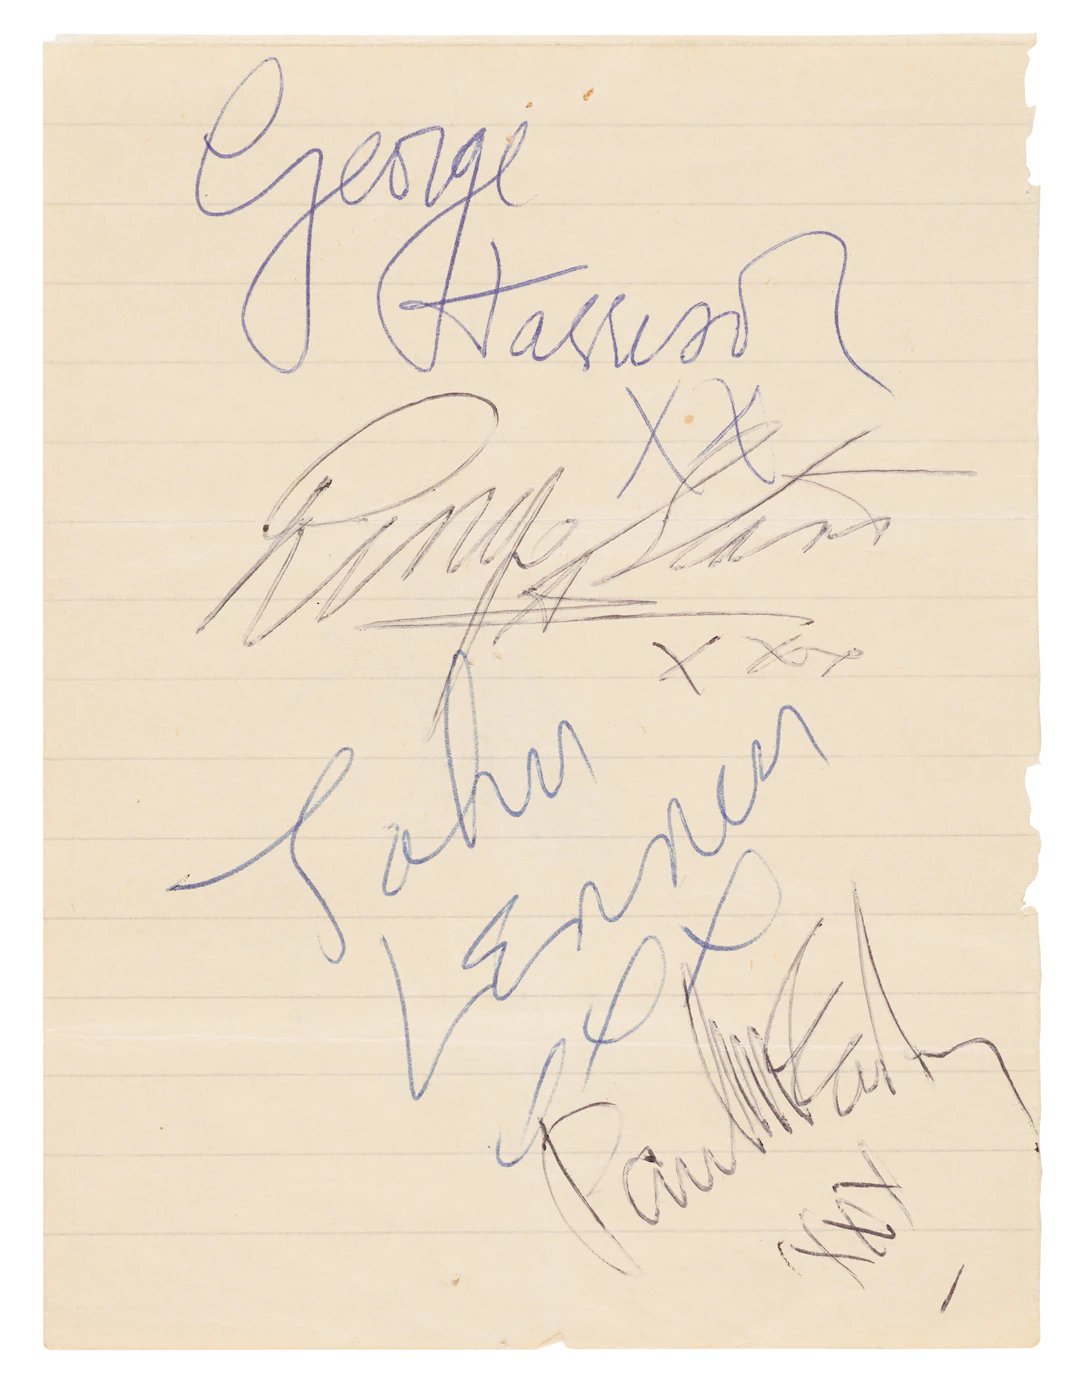 George
Harrison
XX
Ringo Starr
X X X X
John
Lennon
XX
Paul McCartney
XXX